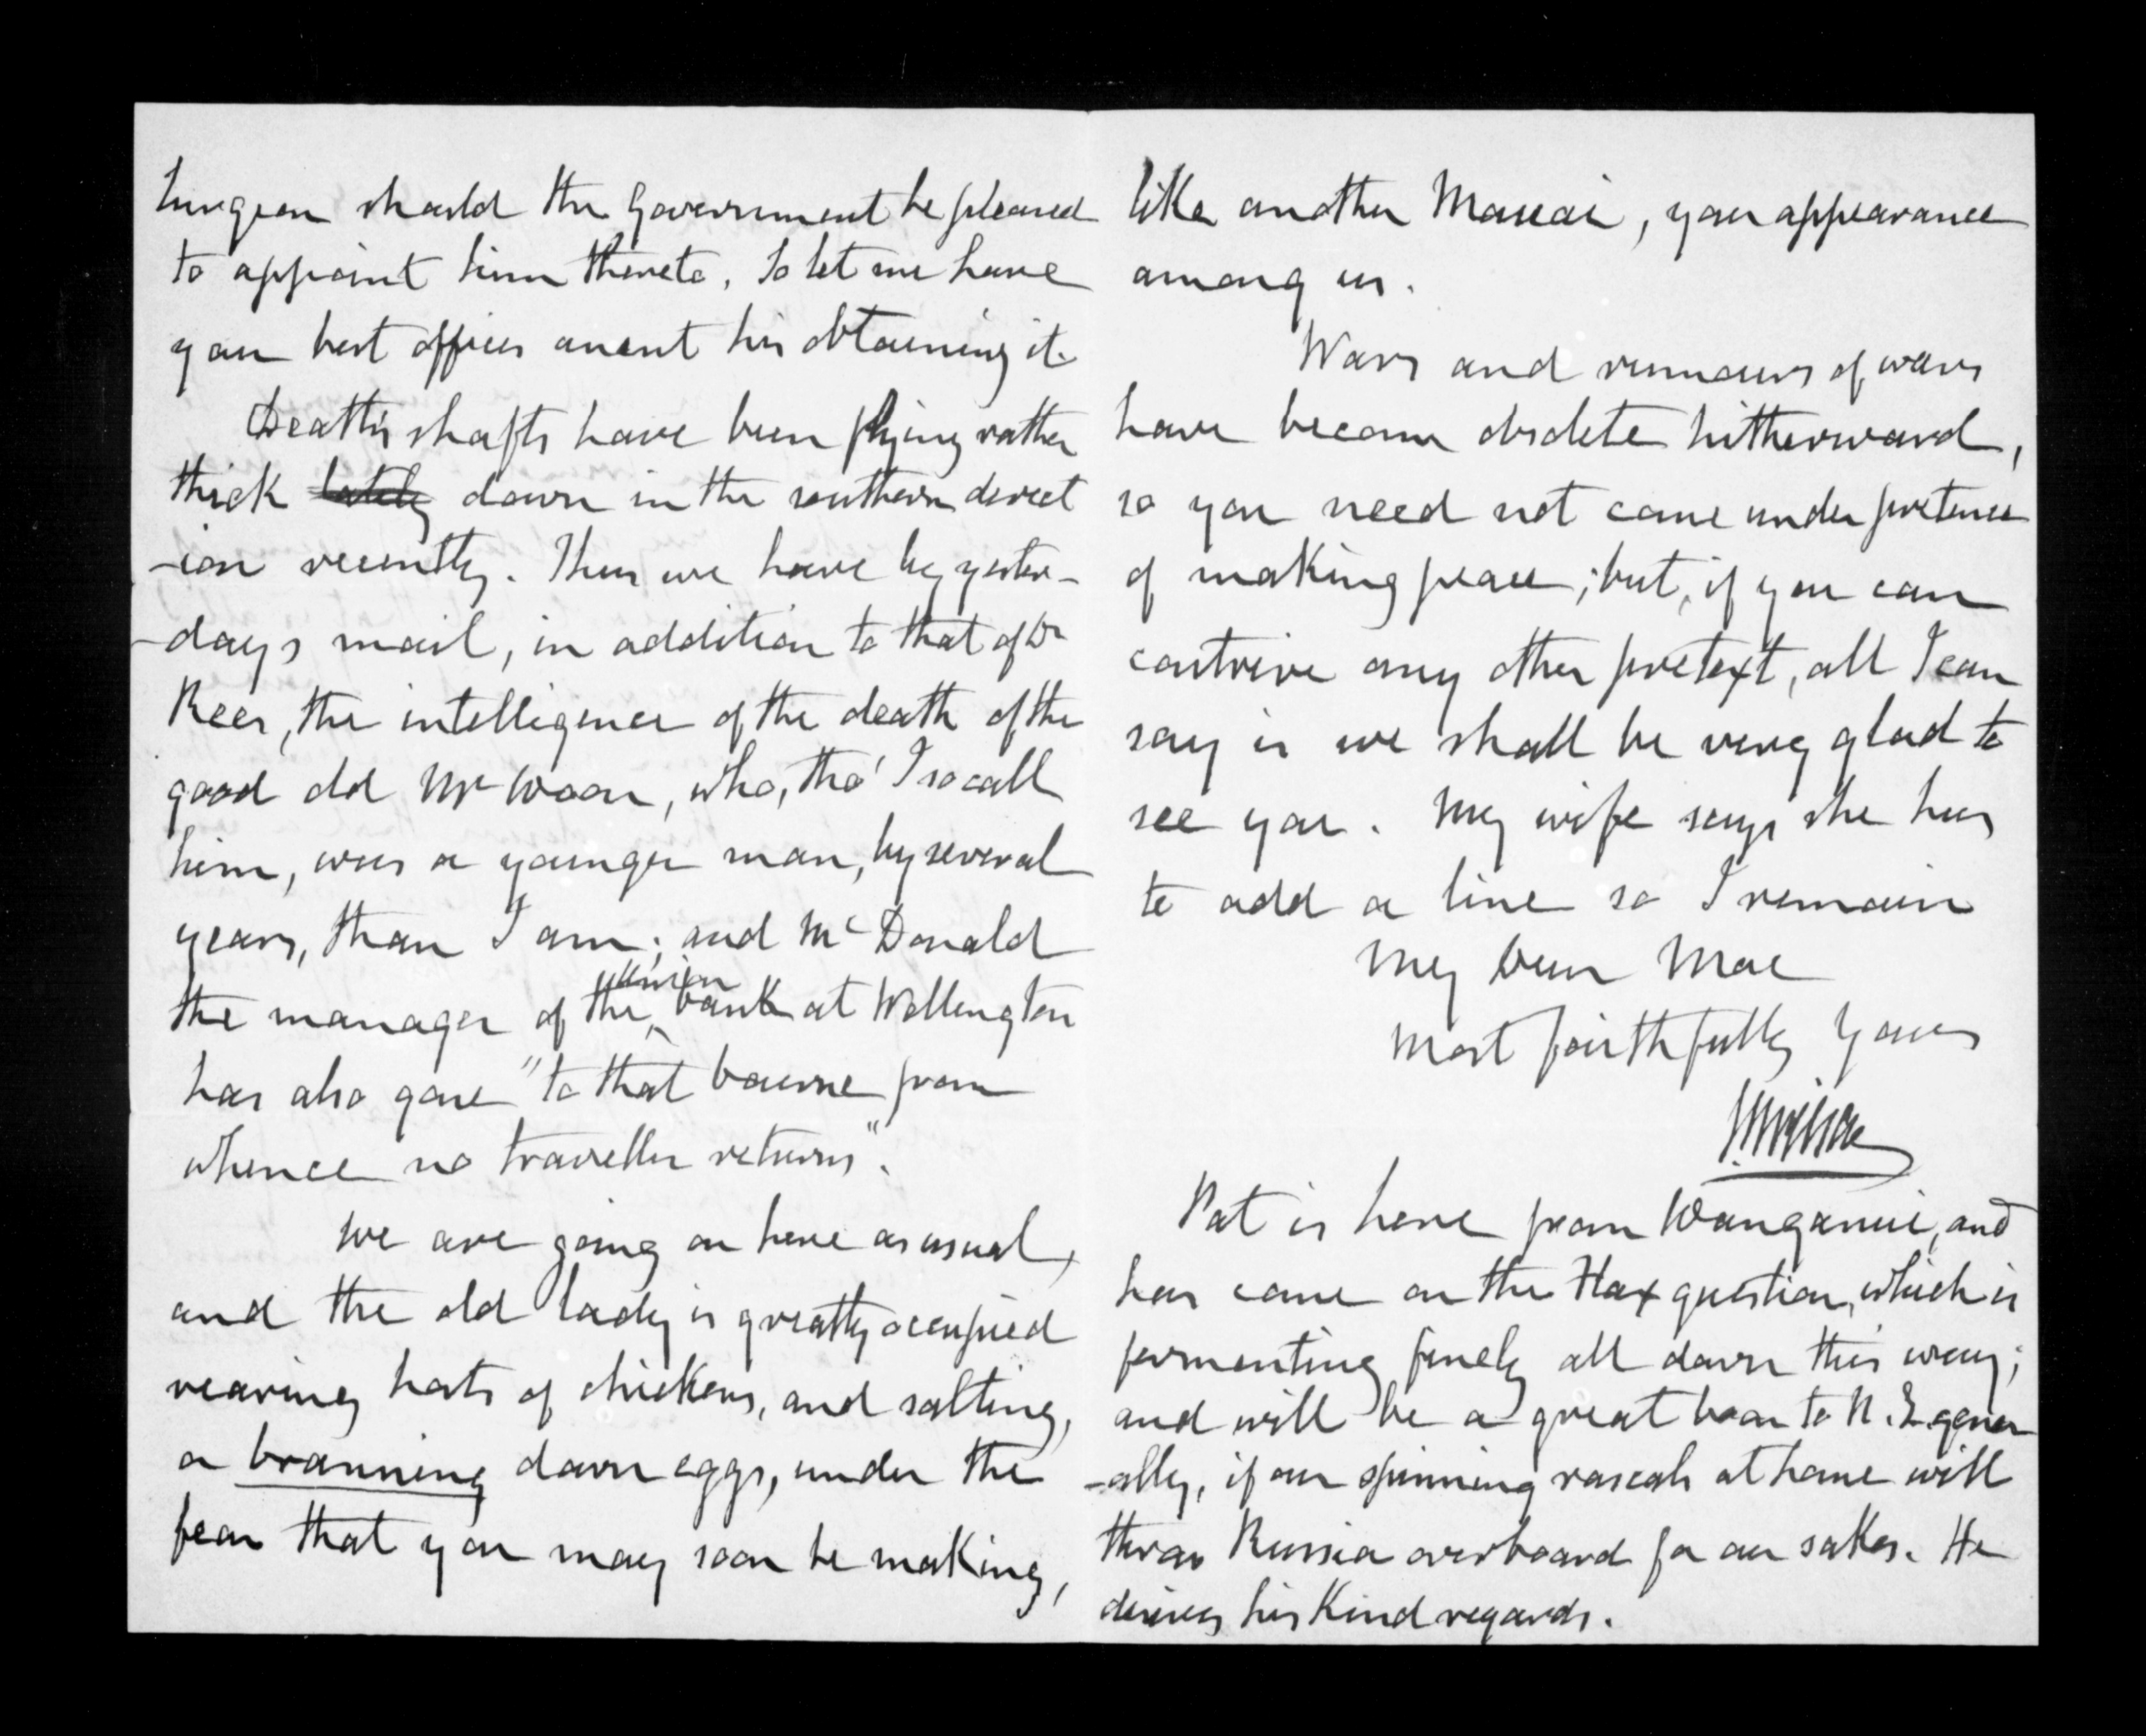 Surgeon should the Government be pleased
to appoint him thereto. So let me have
your best offices anent his obtaining it.
Death's shafts have been flying rather
thick lately down in the southern direct
-ion recently. Thus we have by yester-
-days mail, in addition to that of Dr
Rees, the intelligence of the death of the
good old Mr Woon, who, tho' I so call
him, was a younger man, by several
years, than I am; and McDonald
the manager of the Union bank at Wellington
has also gone "to that bourne from
whence no traveller returns".
We are going on here as usual,
and the old lady is greatly occupied
rearing hosts of chickens, and salting,
or branning down eggs, under the
fear that you may soon be making,
like another , your appearance
among us.
Wars and rumours of wars
have become obsolete hitherward,
so you need not come under pretence
of making peace; but, if you can
contrive any other pretext, all I can
say is we shall be very glad to
see you. My wife says she has
to add a line so I remain
My Dear Mac
Most faithfully Yours
Pat is here from Wanganui, and
has come on the Flax question, which is
fermenting finely all down this way;
and will be a great boon to N.Z gener
-ally, if our spinning rascals at home will
throw Russia overboard for our sakes. He
desires his kind regards.